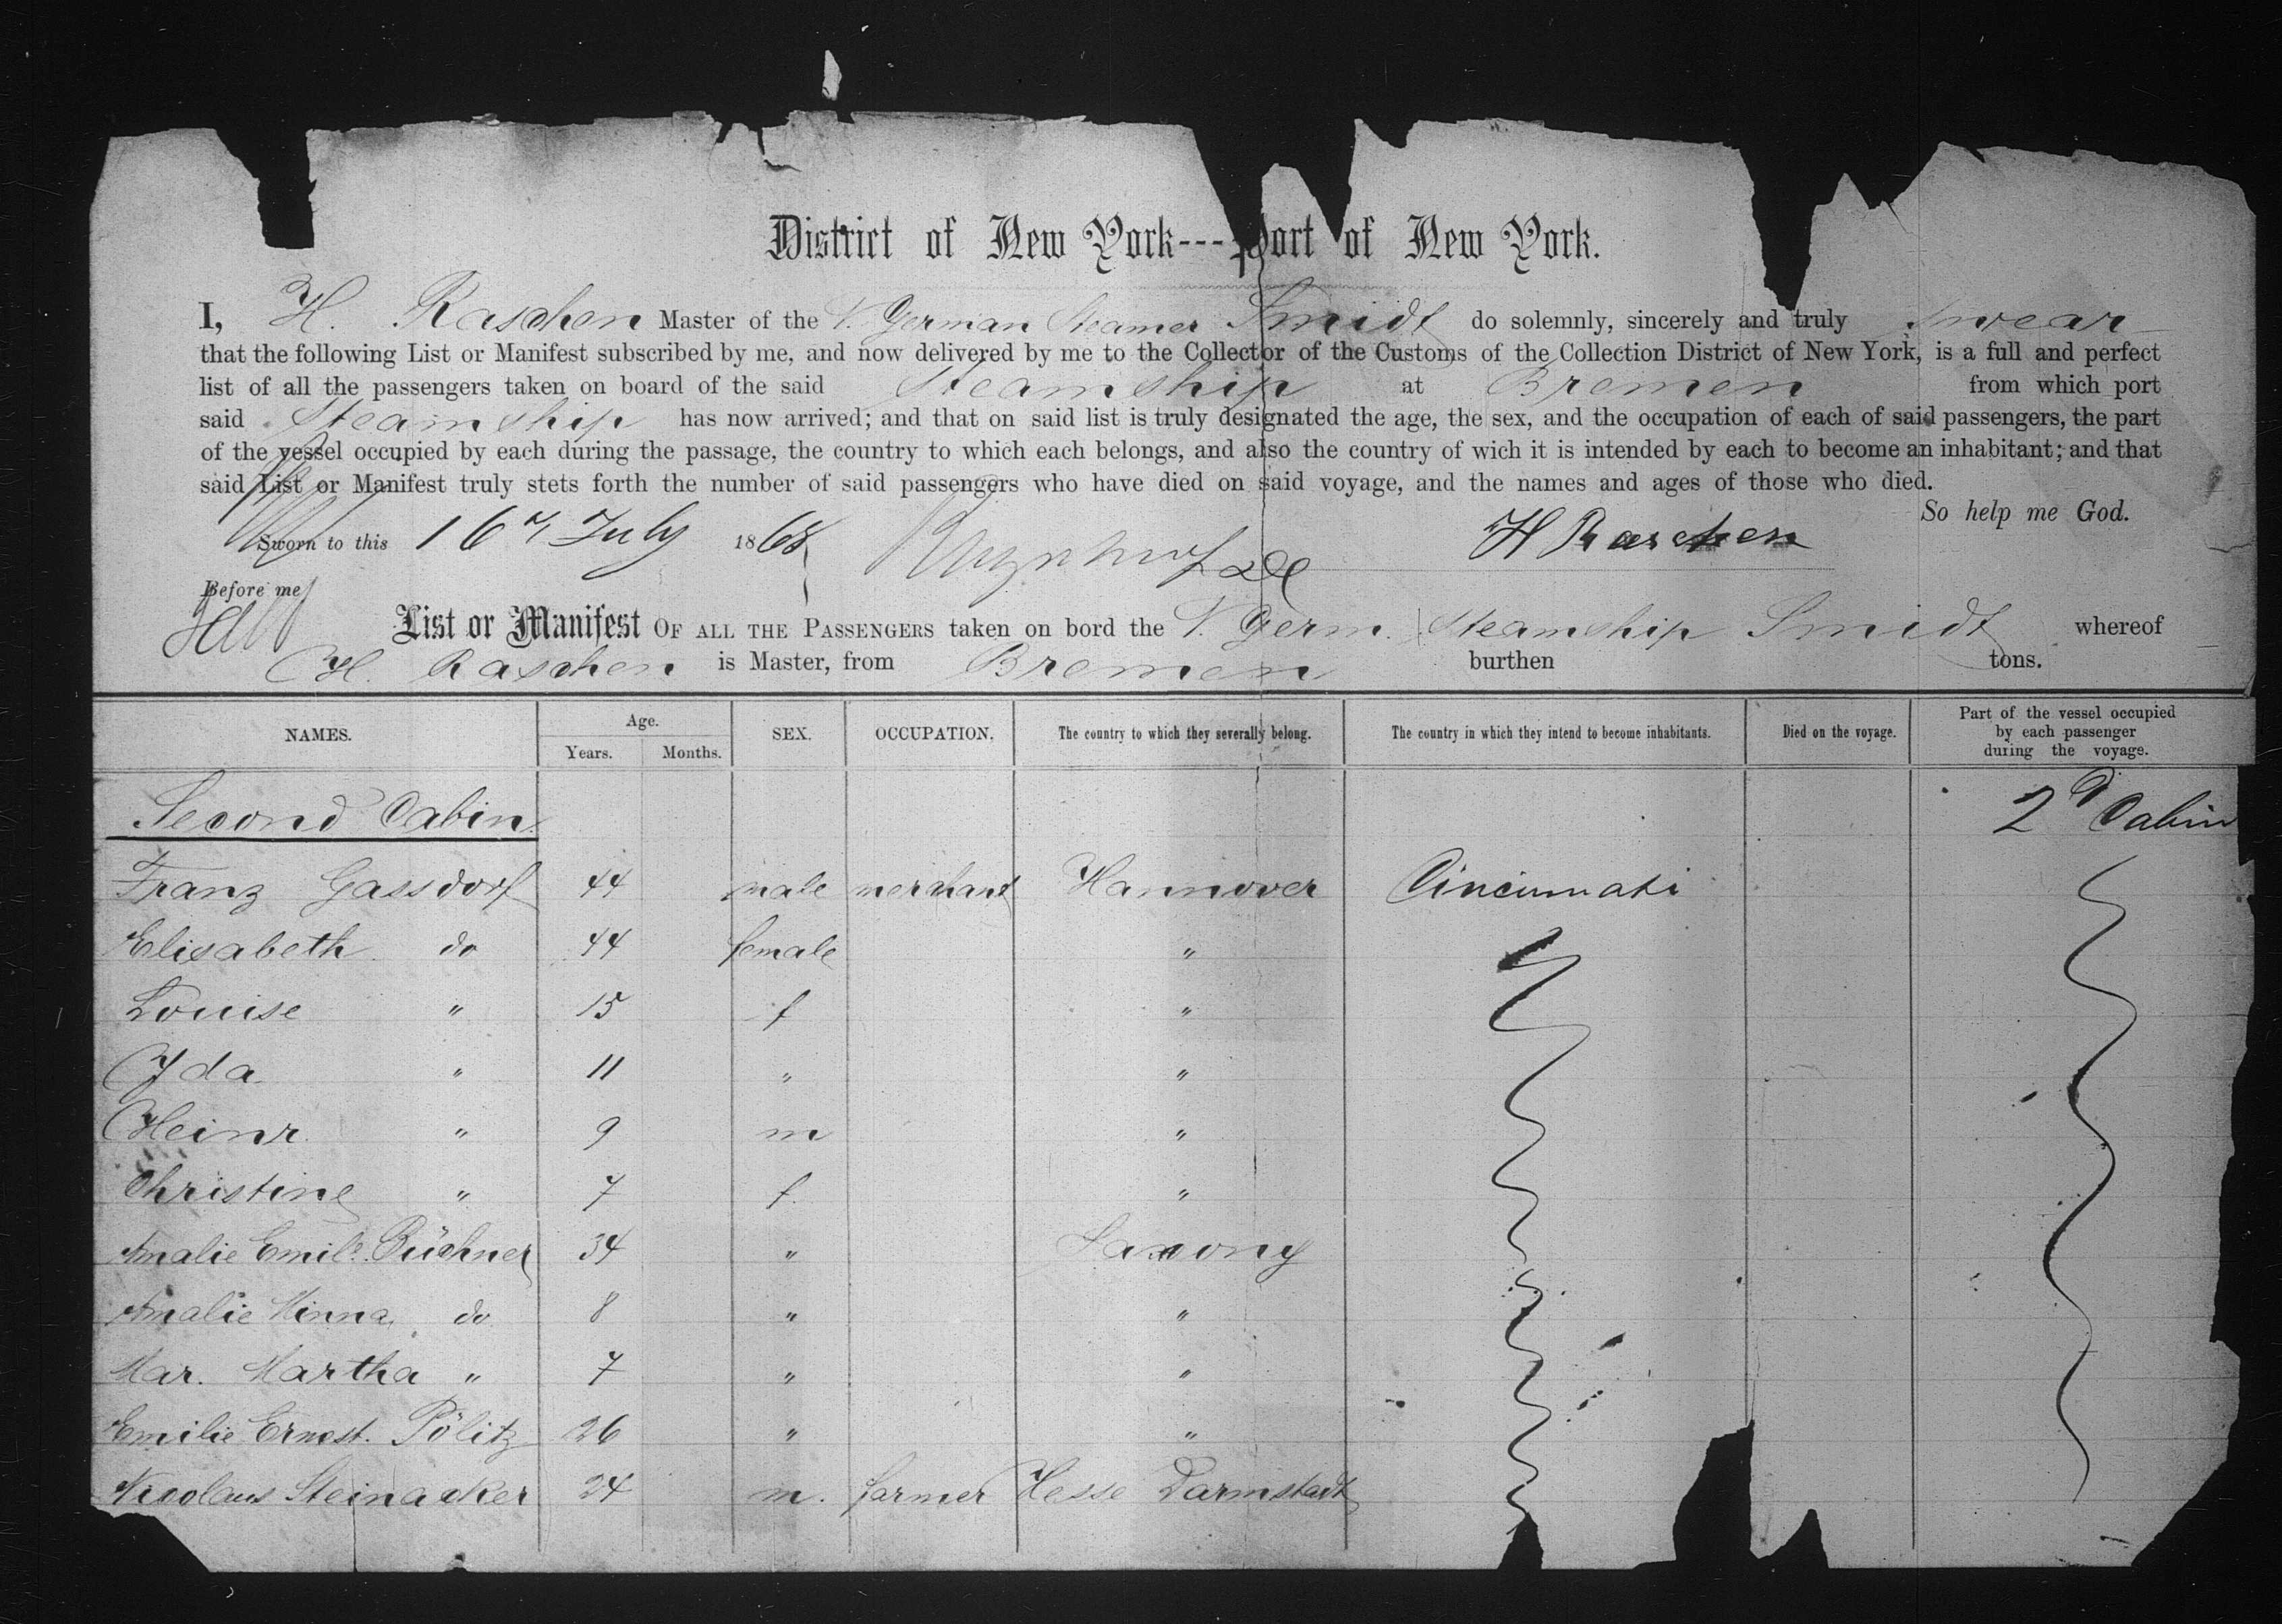 District of New York---Port of New York.
I, H. Raschen Master of the N. German Steamer Smidt do solemnly, sincerely and truly swear
that the following List or Manifest subscribed by me, and now delivered by me to the Collector of the Customs of the Collection District of New York, is a full and perfect
list of all the passengers taken on board of the said Steamship at Bremen from which port
said Steamship has now arrived; and that on said list is truly designated the age, the sex, and the occupation of each of said passengers, the part
of the vessel occupied by each during the passage, the country to which each belongs, and also the country of wich it is intended by each to become an inhabitant; and that
said List or Manifest truly stets forth the number of said passengers who have died on said voyage, and the names and ages of those who died.
So help me God.
Sworn to this 16 July 1868 H Raschen
Before me
List or Manifest OF ALL THE PASSENGERS taken on bord the N. Germ. Steamship Smidt whereof
H. Raschen is Master, from Bremen burthen tons.
NAMES. Age. Years. Months. SEX. OCCUPATION. The country to which they severally belong. The country in which they intend to become inhabitants. Died on the voyage. Part of the vessel occupied by each passenger during the voyage.
Second Cabin 2d Cabin
Franz Gassdorf 44 male merchant Hannover Cincinnati
Elisabeth do 44 female "
Louise " 15 f "
Ida " 11 " "
Heinr " 9 m "
Christine " 7 f "
Amalie Emil. Büchner 34 " Saxony
Amalie Minna do 8 " "
Mar. Martha " 7 " "
Emilie Ernest. Pölitz 26 " "
Nicolaus Steinacker 24 m. farmer Hesse Darmstadt